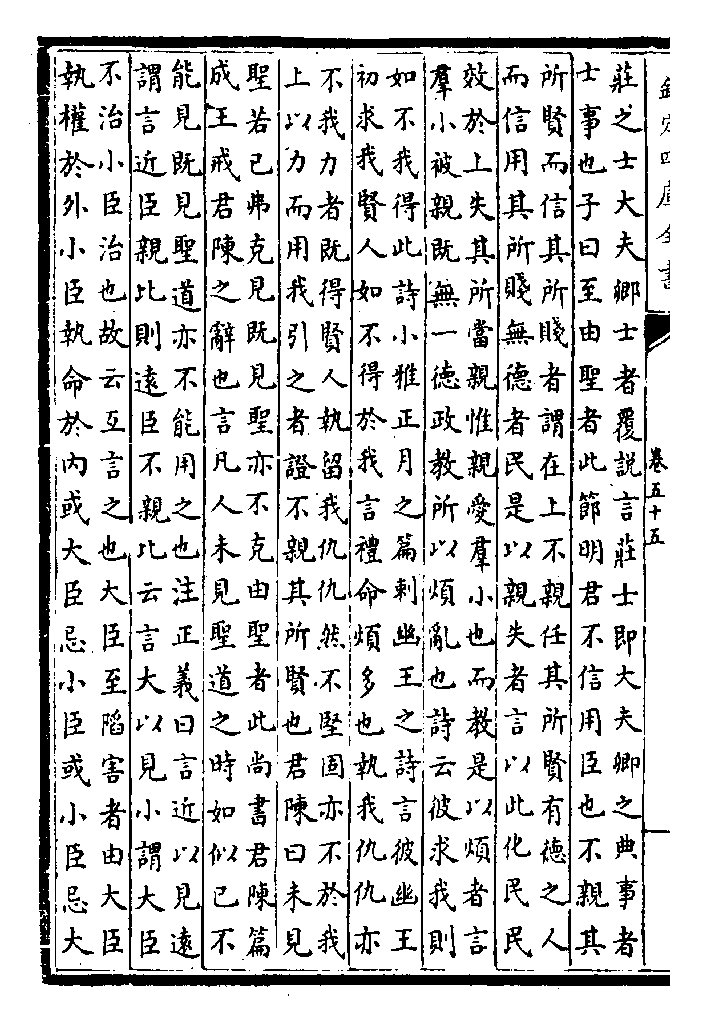 欽定四庫全書
卷五十五
莊之士大夫卿士者覆說言莊士即大夫卿之典事者
士事也子曰至由聖者此節明君不信用臣也不親其
所賢而信其所賤者謂在上不親任其所賢有德之人
而信用其所賤無德者民是以親失者言以此化民民
效於上失其所當親惟親愛羣小也而教是以煩者言
羣小被親既無一德政教所以煩亂也詩云彼求我則
如不我得此詩小雅正月之篇刺幽王之詩言彼幽王
初求我賢人如不得於我言禮命煩多也執我仇仇亦
不我力者既得賢人執留我仇仇然不堅固亦不於我
上以力而用我引之者證不親其所賢也君陳曰未見
聖若已弗克見既見聖亦不克由聖者此尚書君陳篇
成王戒君陳之辭也言凡人未見聖道之時如似已不
能見既見聖道亦不能用之也注正義曰言近以見遠
謂言近臣親比則遠臣不親比云言大以見小謂大臣
不治小臣治也故云互言之也大臣至陷害者由大臣
執權於外小臣執命於内或大臣忌小臣或小臣忌大